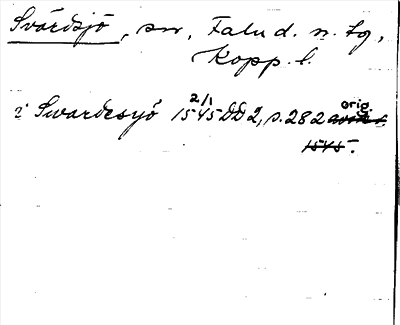 Svärdsjö, sn, Falu d. n. tg,
Kopp. l.
i Swardesyö 2/1 1545 DD 2, s. 282 orig.
1545.